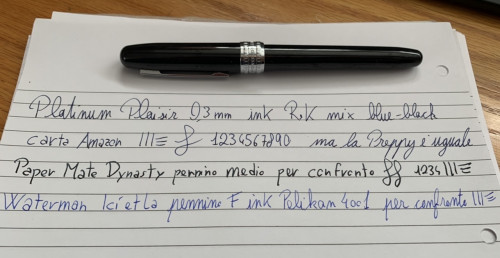 Platinum Plaisir 0,3 mm ink R&K mix blue-black
carta Amazon 1234567890 ma la Preppy è uguale
Paper Mate Dynasty pennino medio per confronto ff 1234
Waterman pennino F ink Pelikan 4001 per confronto